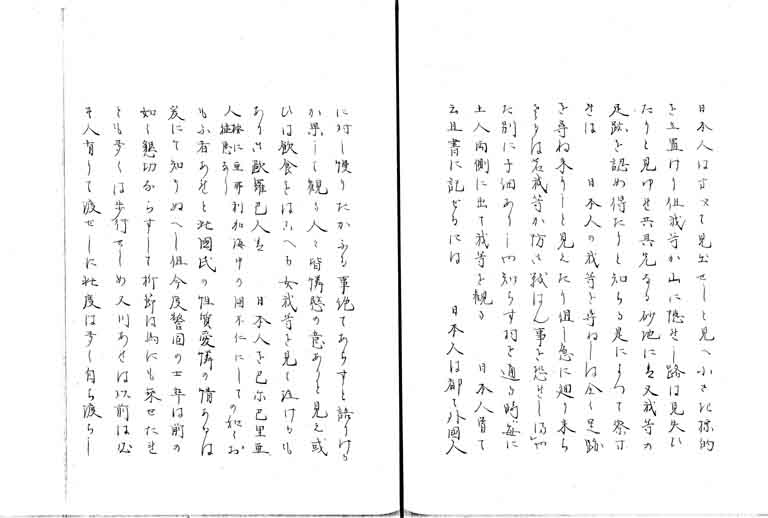 日本人はすへて見出せしと見へ小さな標的
を立置けり但我等か山に隠せし路は見失ひ
たりと見ゆ其先なる砂地に至又我等の
足跡を認め得たりと知らる是によつて察す
れは 日本人の我等を尋ねしは全く足跡
を尋ね来りしと見えたり但し急に廻り来ら
さりしは若我等か防き戦はん事を恐せし
た別に子細ありし 知らす村を通る時毎に
土人両側に出て我等を観る 日本人曾て
云且書に記せるには 日本人は都て外國人
に対し慢りたかふる事絶てあらすと語りける
か果して観る人々皆憐愍の意ありと見え或
ひは飲食をはこへり女我等を見て泣けるも
あり 歐羅巴人は 日本人を 巴里亜
人 亜弗利加海中の國不仁にして の如くお
もふ者あれと此國民の性質愛憐の情あるは
爰にて知りぬへし但今度警固の士卒は前の
如く懇切ならすして折節は馬にも乗せたれ
とも多くは歩行せしめ又川あれは以前は必
す人有りて渡せしに此度は多く自ら渡らし